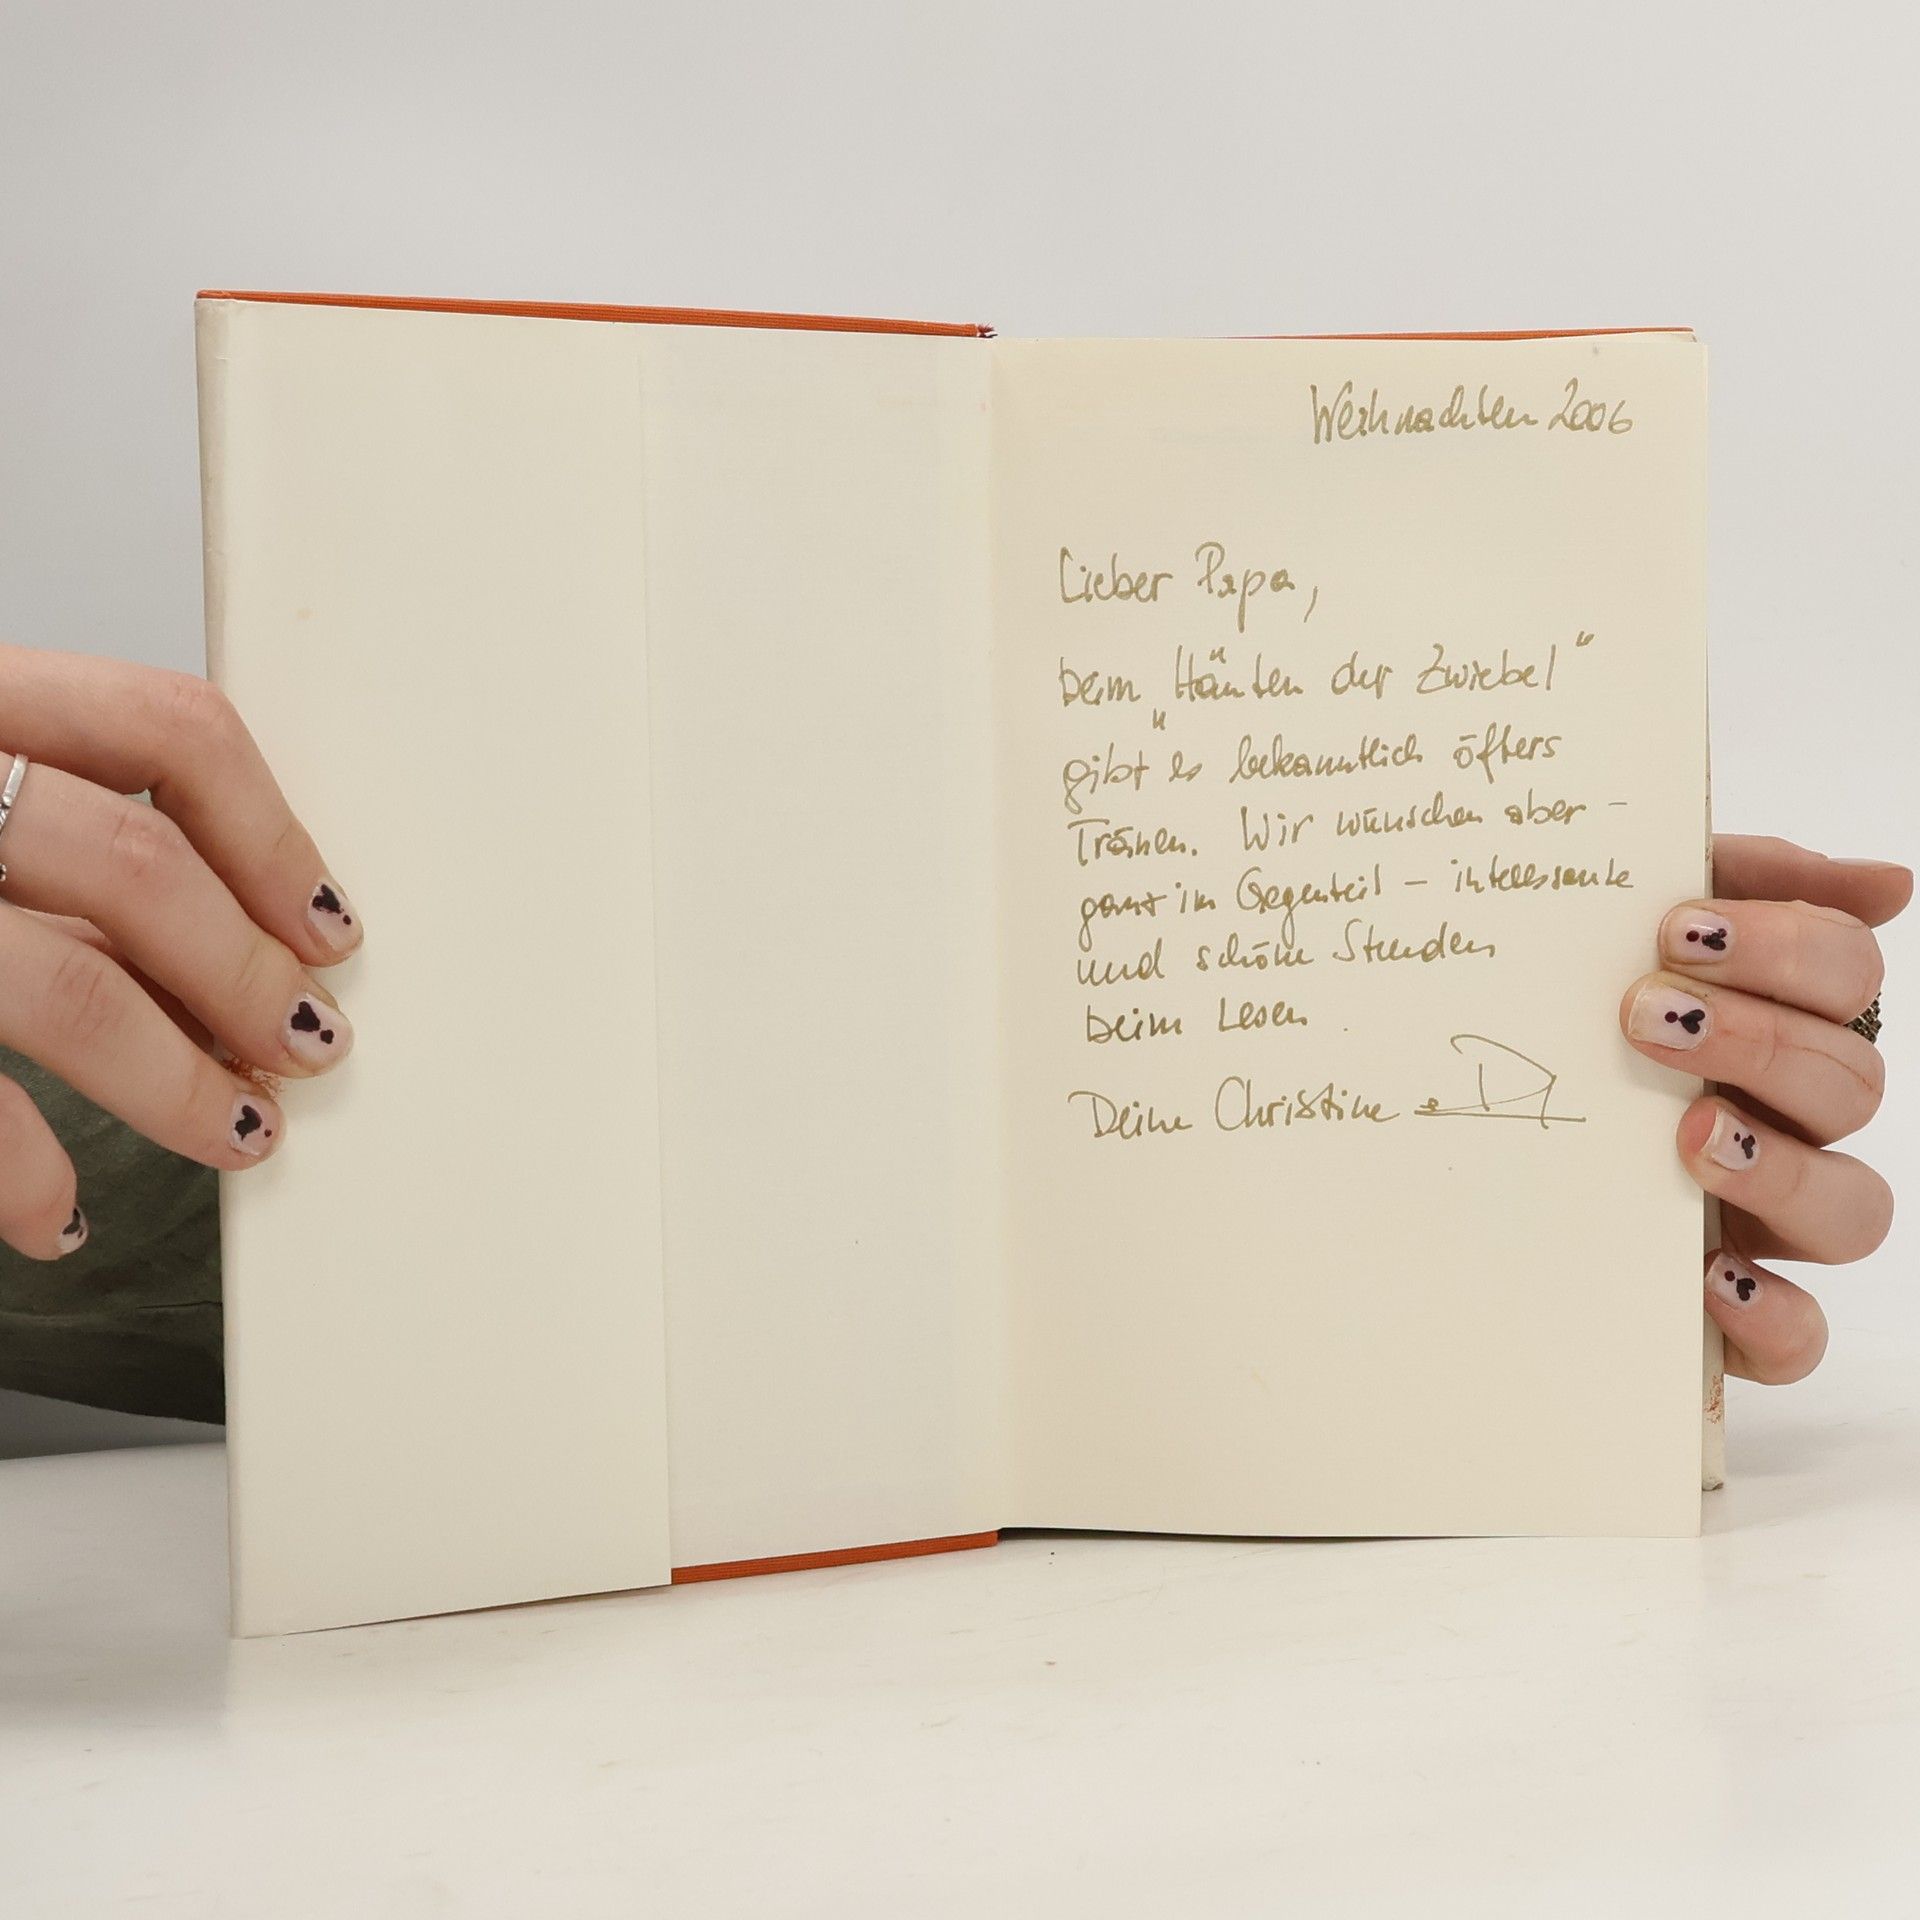 Weihnachten 2006
Lieber Papa,
beim „Häuten der Zwiebel“
gibt es bekanntlich öfters
Tränen. Wir wünschen aber –
ganz im Gegenteil – interessante
und schöne Stunden
beim Lesen.
Deine Christine